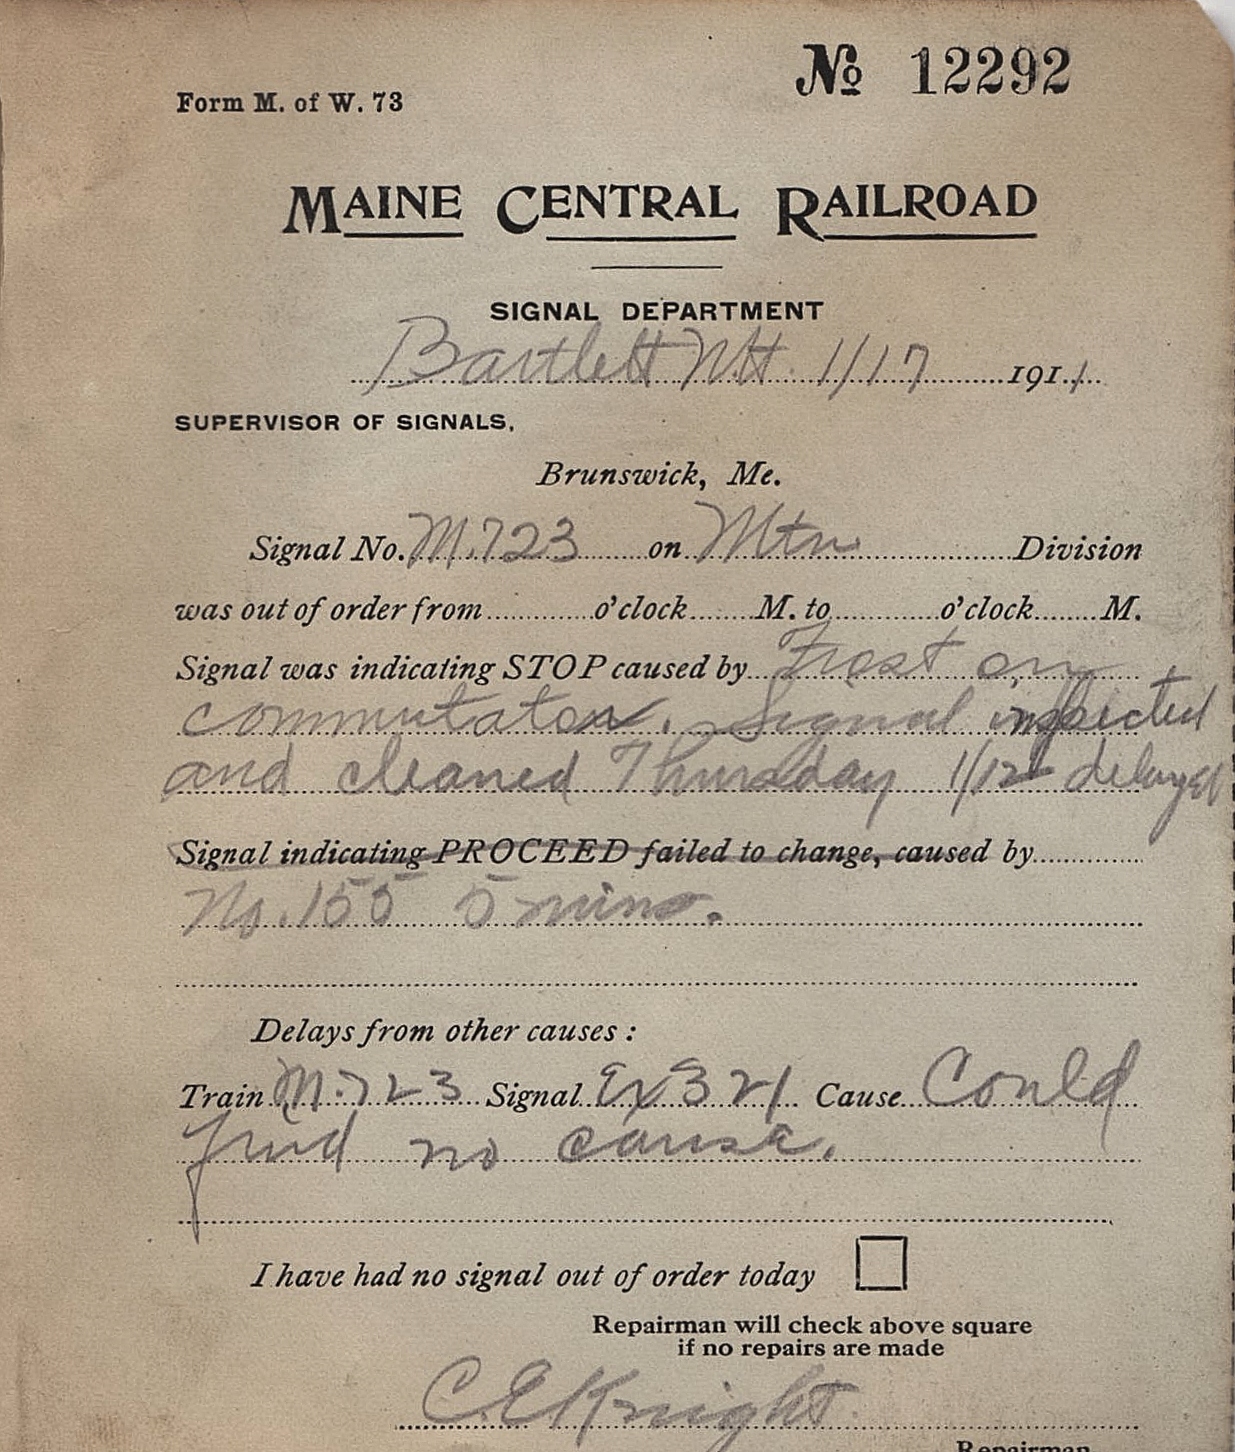 Form M. of W. 73
No 12292
MAINE CENTRAL RAILROAD
SIGNAL DEPARTMENT
Bartlett N.H. 1/17 1911
SUPERVISOR OF SIGNALS,
Brunswick, Me.
Signal No. M.723 on Mtn Division
was out of order from o'clock M. to o'clock M.
Signal was indicating STOP caused by Frost on
commutator. Signal inspected
and cleaned Thursday 1/12 delayed
Signal indicating PROCEED failed to change, caused by
No. 155 5 mins.
Delays from other causes :
Train M.723 Signal Ex 321 Cause Could
find no cause.
I have had no signal out of order today
Repairman will check above square
if no repairs are made
C.E. Knight
Repairman